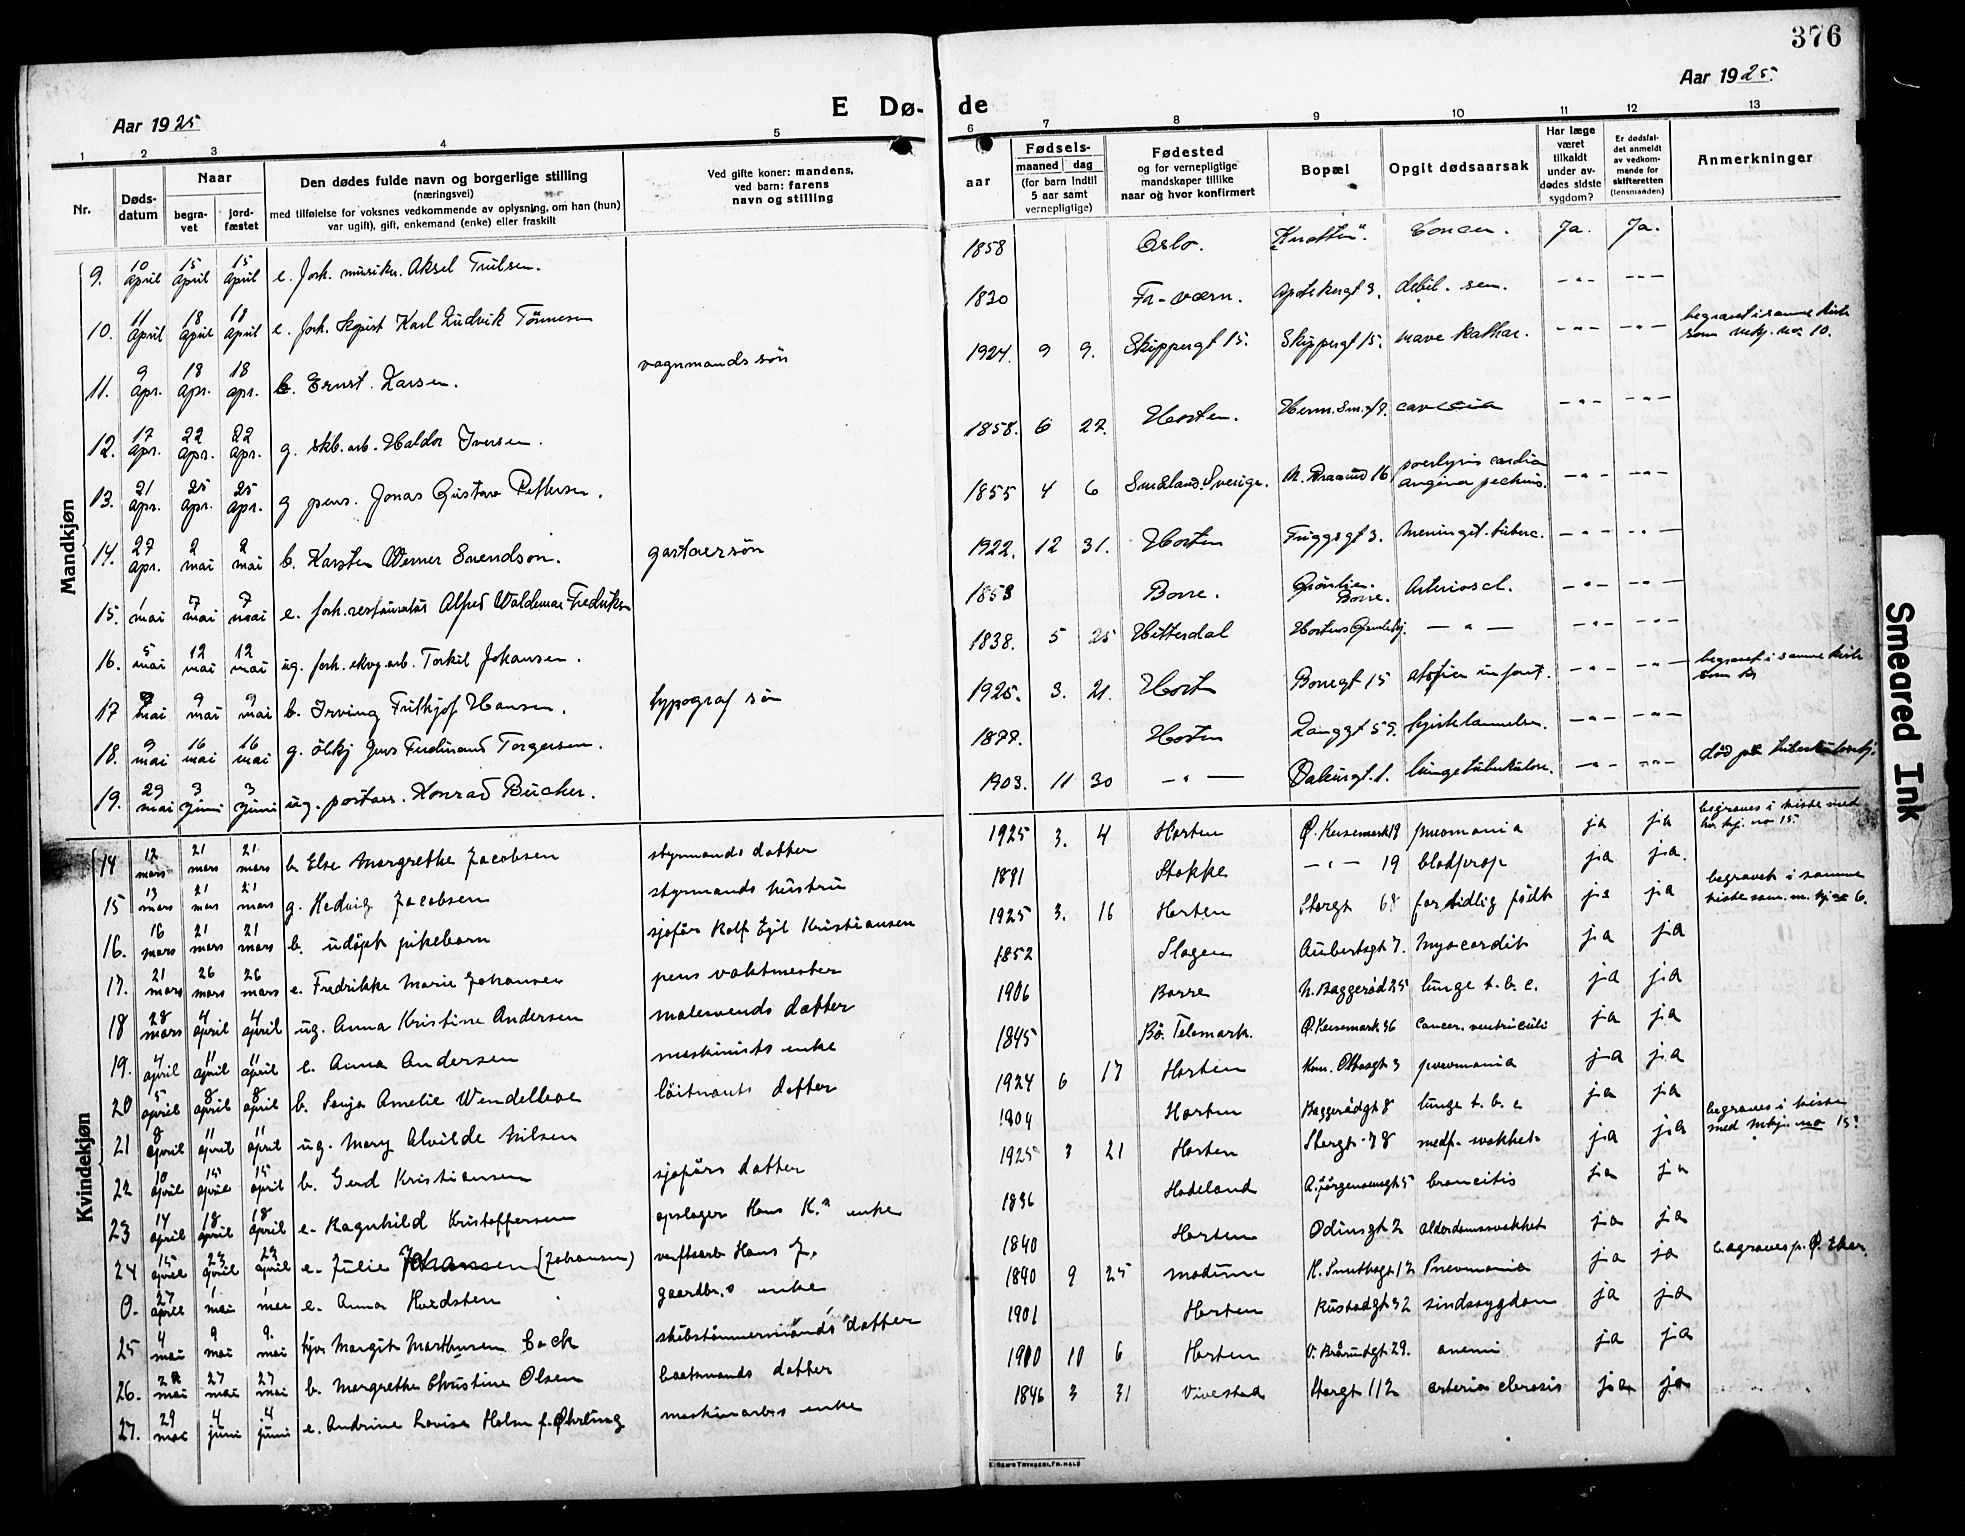 376
Aar 1925
E Dø-de
Aar 1925.
1 2 3 4 5 6 7 8 9 10 11 12 13
Nr.
Døds-datum
Naar
begra-vet
jord-fæstet
Den dødes fulde navn og borgerlige stilling
(næringsvei)
med tilføielse for voksnes vedkommende av oplysning, om han (hun)
var ugift), gift, enkemand (enke) eller fraskilt
Ved gifte koner: mandens,
ved barn: farens
navn og stilling
aar
Fødsels-
maaned dag
(for barn indtil
5 aar samt
vernepligtige)
Fødested
og for vernepligtige
mandskaper tillike
naar og hvor konfirmert
Bopæl
Opgit dødsaarsak
Har læge
været
tilkaldt
under av-
dødes sidste
sygdom?
Er dødsfal-
det anmeldt
av vedkom-
mende for
skifteretten
(lensmanden)
Anmerkninger
Mandkjøn
9. 10 april 15 april 15 april e. forh. musiker. Aksel Trulsen. 1858 Oslo. "Knatten". Cancer. Ja. Ja.
10. 11 april 18 april 18 april e. forh. Karl Ludvik Tönnesen 1830 Fr-værn. Apotekergt 3. debil. sen. -"- -"-
11. 9 apr. 18 apr. 18 apr. b. Ernst. Larsen. vognmands sön 1924. 9 9. Skippergt 15. Skippergt 15. mave kathar. -"- -"- begravet i samme kiste som mkj. no. 10.
12. 17 apr. 22 apr. 22 apr. g. skb. arb. Haldor Iversen. 1858. 6 27. Horten. -"- -"-
13. 21 apr. 25 apr. 25 apr. g pens. Jonas Gustav Pettersen. 1855 4 6 Småland. Sverige. 16 angina pectoris. -"- -"-
14. 27 apr. 2 mai 2 mai b. Karsten Werner Svendson. gartnersön 1922. 12 31. Horten Friggsgt 3. meningit. tuberc. -"- -"-
15. 1 mai 7 mai 7 mai e. forh. restauratör Alfred Waldemar Fredriksen 1853 Borre. Grönlien. Borre. Arterioscl. -"- -"-
16. 5 mai 12 mai 12 mai ug. forh. ekvp. arb. Torkil Johansen. 1838. 5 25 Hitterdal Hortens Gamlehj. -"- -"- -"-
17 mai 9 mai 9 mai b. Irving Frithjof Hansen. typograf sön 1925. 3. 21. Horten Borregt 15 -"- -"- begravet i samme kiste som
18. 9 mai 16 mai 16 mai g. ölkj Jens Ferdinand Torgersen. 1877. Horten Langgt 59. hjertelammelse. -"- -"-
19. 29 mai 3 juni 3 juni ug. postass. Konrad Bücher. 1903. 11 30 -"- lungetuberkulose. -"- -"- död på tuberkulosehj.
Kvindekjøn
14 12 mars 21 mars 21 mars b. Else Margrethe Jacobsen styrmands datter 1925 3. 4 Horten Ø. Keisemark 19 pneomonia ja ja begraves i kiste med kv. kj. no 15.
15 13 mars 21 mars 21 mars g. Hedvig Jacobsen styrmands hustru 1891 Stokke -"- 19 blodprop ja ja.
16. 16 mars 21 mars 21 mars b. udöpt pikebarn sjoför Rolf Egil Kristiansen 1925 3. 16 Horten Storgt 68 for tidlig födt ja ja begravet i samme kiste som. m. kj. no 6.
17. 21 mars 26 mars 26 mars e. Fredrikke Marie Johansen pens vaktmester 1852 Slagen Aubertsgt 7. Myocardit ja ja
18 28 mars 4 april 4 april ug. Anna Kristine Andersen malersvends datter 1906 Borre N. Baggeröd 25 lunge t.b.c. ja ja
19. 4 april 11 april 11 april e. Anna Andersen maskinists enke 1845 Bö. Telemark. Ø. Keisemark 36 cancer. ventriculi ja ja
20 5 april 8 april 8 april b. Sonja Amelie Wendelboe löitnants datter 1924 6 17 Horten 3 pneumonia ja ja
21 8 april 11 april 11 april ug. Mary Alvilde Nilsen 1904 Horten Baggerödgt 8 lunge t.b.c ja ja
22 10 april 15 april 15 april b. Gerd Kristiansen sjoförs datter 1925 3 21 Horten Storgt. 78 medf. svakhet ja ja begraves i kiste med mkj. no 15?
23 14 april 18 april 18 april e. Ragnhild Kristoffersen opslager Hans K.s enke 1836 Hadeland A. Jörgensensgt 5 broncitis ja ja
24 15 april 23 april 23 april e. Julie Johansen (Johansen) verftsarb Hans J. 1840 Horten Odinsgt 2 alderdomssvakhet ja ja
0. 27 april 1 mai 1 mai e. Anna Hvidsten gaardbr.s enke 1840 9 25 modum 12 Pneomonia ja ja begraves p. Ø. Eker.
25 4 mai 9 mai 9. mai Margit Marthinsen Bock skibstömmermands datter 1901 Horten Rustadgt 32 sindssygdom ja ja
26. mai 27 mai 27 mai b. Margrethe Christine Olsen baatsmands datter 1910 10 6 Horten V. Brårudgt 29. anemi ja ja
27. 29 mai 4 juni 4 juni e. Andrine Lovise Holm f. maskinarb.s enke 1846 3 31 Vivestad Storgt 112 arteriosclerosis ja ja
Smeared Ink